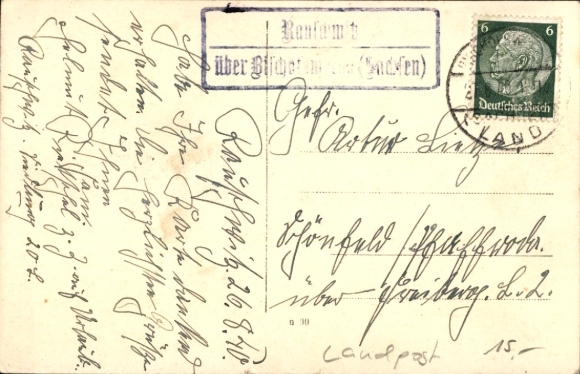 Rauschwitz
über Bischofswerda (Sachsen)
6 6
Deutsches Reich
LAND
Rauschwitz, 26.8.40.
Habe Ihre Karte dankend
erhalten. Die herzlichsten Grüße
sendet Ihnen
Helmut
z. Z. auf Urlaub.
Rauschwitz
Gefr.
Artur Lietze
Schönfeld / Pfaffroda.
über Freiberg. L. 2.
Landpost 15.-